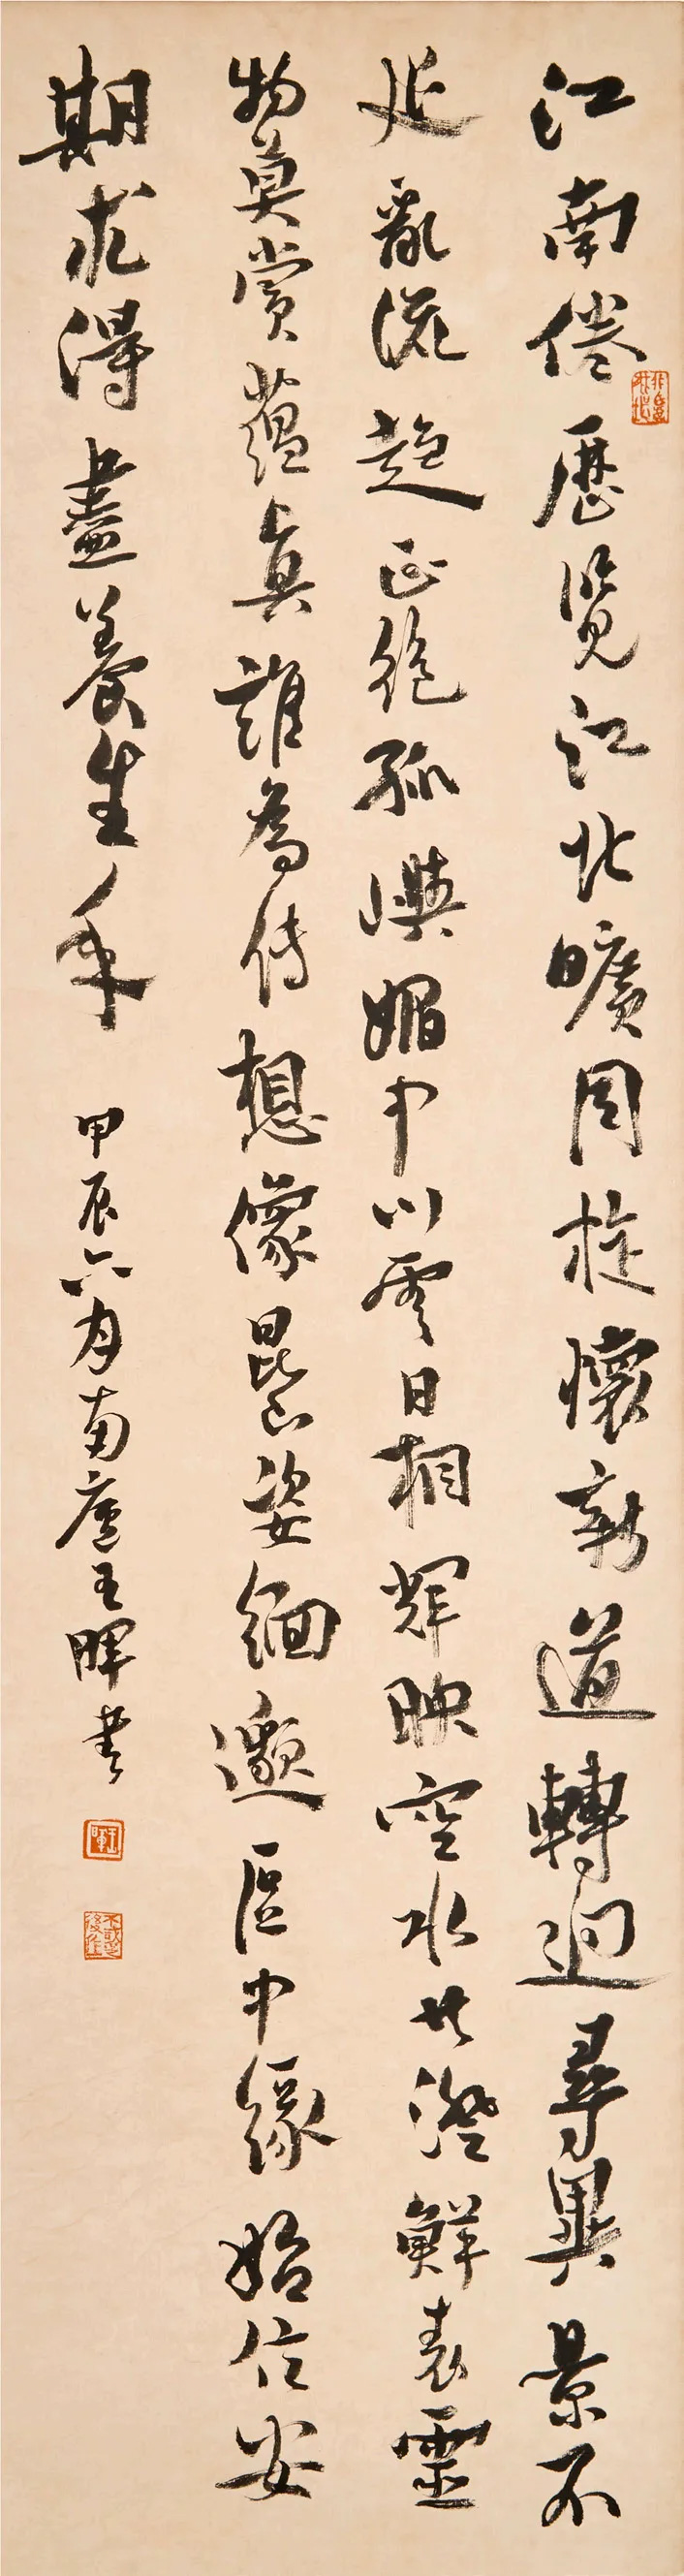 江南倦歷覽江北曠周旋懷新道轉迥尋異景不
延亂流趨正絕孤嶼媚中川雲日相輝映空水共澄鮮表靈
物莫賞蘊真誰為傳想像昆山姿緬邈區中緣始信安
期朮得盡養生年 甲辰六月南廬王暉書